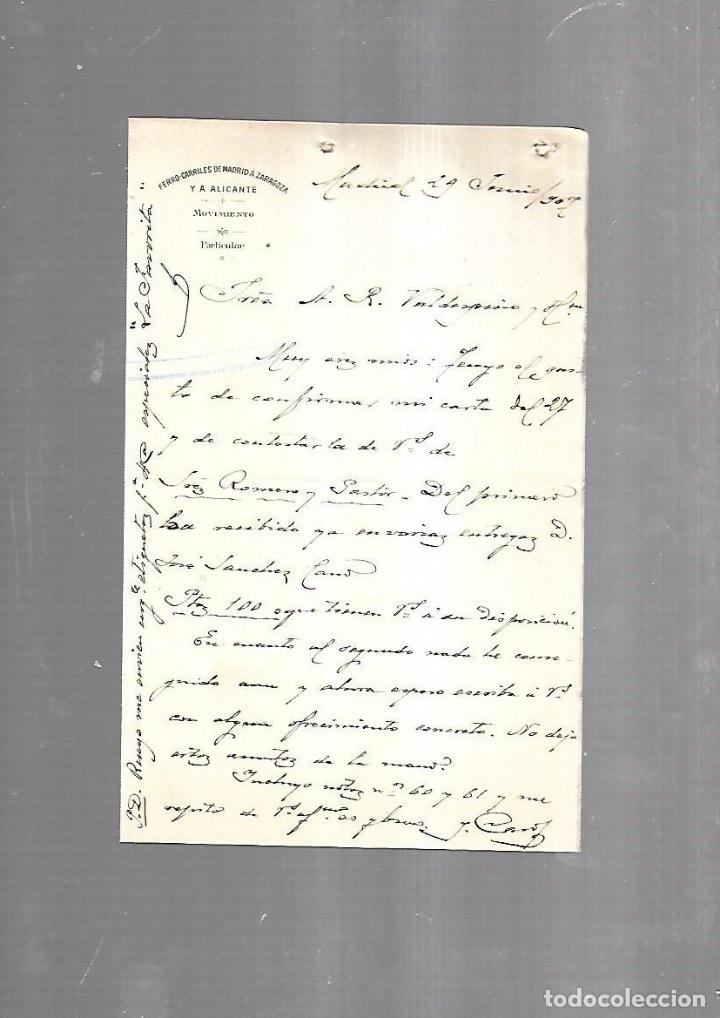 FERRO-CARRILES DE MADRID A ZARAGOZA
Y A ALICANTE
MOVIMIENTO
Particular
Madrid 29 Junio/907
Sres A. R. Valdespino y Hno
Muy Sres mios: Tengo el gus-
to de confirmar mi carta del 27
y de contestar la de Vs de
Sres Romero y Pastor. Del primero
ha recibido ya en varias entregas D.
José Sanchez Cano
Ptas 100 que tienen Vs á su disposicion.
En cuanto al segundo nada he conse-
guido aun y ahora espero escriba á Vs
con algun ofrecimiento concreto. No dejo
estos asuntos de la mano.
Incluyo notas nos 60 y 61 y me
repito de Vs
J. Cano
P.D. Ruego me envien etiquetas especiales "La Favorita"
todocoleccion
todocoleccion.net